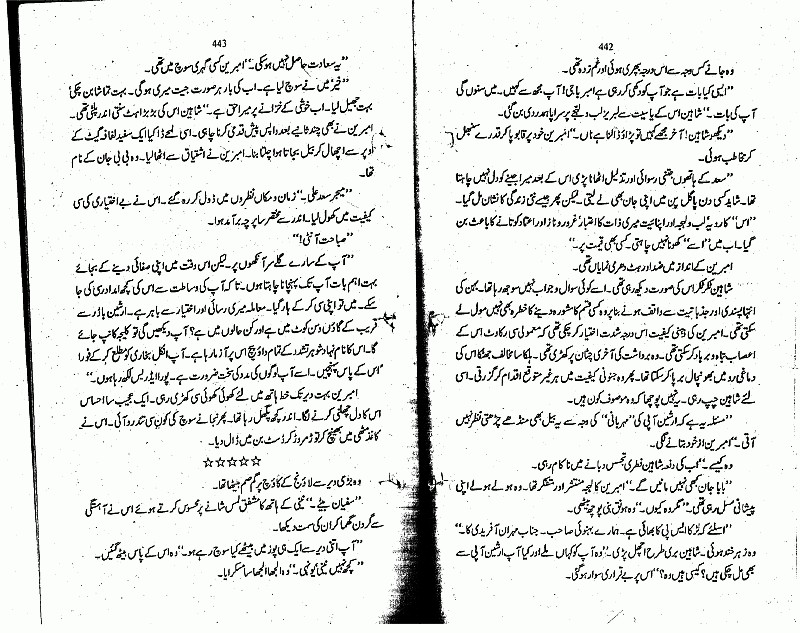 442
وہ جانے کس وجہ سے اس درجہ بپھری ہوئی اور غم زدہ تھی۔
"ایسی کیا بات ہے جو آپ کو دکھی کر رہی ہے امبرین باجی! آپ مجھ سے کہیں۔ میں سنوں گی
آپ کی بات۔" شاہین اس کے یاسیت سے لبریز لب و لہجے پر سراپا ہمدردی بن گئی۔
"دیکھو شاہین! آخر مجھے کہیں تو پڑاؤ ڈالنا ہے ناں۔" امبرین خود پر قابو پا کر قدرے سنبھل
کر مخاطب ہوئی۔
"سعد کے ہاتھوں جتنی رسوائی اور تذلیل اٹھانا پڑی اس کے بعد میرا جینے کو دل نہیں چاہتا
تھا۔ شاید کسی دن پاگل پن میں اپنی جان بھی لے لیتی۔ لیکن پھر جیسے نئی زندگی کا نشان مل گیا۔
"اس" کا رویہ لب و لہجہ اور اپنائیت میری ذات کا اعتبار، غرور و ناز اور اعتماد لوٹانے کا باعث بن
گیا۔ اب میں "اسے" کھونا نہیں چاہتی۔ کسی بھی قیمت پر۔"
امبرین کے انداز میں ضد اور ہٹ دھرمی نمایاں تھی۔
شاہین ٹکر ٹکر اس کی صورت دیکھ رہی تھی۔ اسے کوئی سوال و جواب نہیں سوجھ رہا تھا۔ بہن کی
انتہا پسندی اور جذباتیت سے واقف ہونے کی بنا پر وہ کسی قسم کا مشورہ دینے کا خطرہ بھی نہیں مول لے
سکتی تھی۔ امبرین کی ذہنی کیفیت اس درجہ شدت اختیار کر چکی تھی کہ معمولی سی رکاوٹ اس کے
اعصاب تباہ و برباد کر سکتی تھی۔ وہ برداشت کی آخری چٹان پر کھڑی تھی۔ ہلکا سا مخالف جھٹکا اس کی
دماغی رو میں بھونچال برپا کر سکتا تھا۔ پھر وہ جنونی کیفیت میں ہر غیر متوقع اقدام کر گزرتی۔ اسی
لئے شاہین چپ رہی۔ یہ نہیں پوچھا کہ وہ موصوف کون ہیں۔
"مسئلہ یہ ہے کہ ارشین آپی کی "مہربانی" کی وجہ سے یہ بیل بھی منڈھے چڑھتی نظر نہیں
آتی۔" امبرین از خود بتانے لگی۔
"وہ کیسے۔" اب کی دفعہ شاہین فطری تجسس دبانے میں ناکام رہی۔
"بابا جان کبھی نہیں مانیں گے۔" امبرین کا لہجہ منتشر اور متفکر تھا۔ وہ ہولے ہولے اپنی
پیشانی مسل رہی تھی۔ "مگر وہ کیوں۔" وہ ہونق بنی پوچھ بیٹھی۔
"اسلئے کہ کا ایس پی کا بھائی ہے۔ ہمارے بہنوئی صاحب۔ جناب مہران آفریدی کا۔"
وہ زہر خند ہوئی۔ شاہین بری طرح اچھل پڑی۔ "وہ آپ کو کہاں ملے اور کیا آپ ارشین آپی سے
بھی مل چکی ہیں؟ کیسی ہیں وہ؟" اس پر بے قراری سوار ہو گئی۔
443
"یہ سعادت حاصل نہیں ہو سکی۔" امبرین کسی گہری سوچ میں تھی۔
"خیر میں نے سوچ لیا ہے۔ اب کی بار ہر صورت جیت میری ہوگی۔ بہت تماشا بن چکی
بہت جھیل لیا۔ اب خوشی کے خزانے پر میرا حق ہے۔" شاہین اس کی بڑبڑاہٹ سنتی اندر پلٹی تھی۔
امبرین نے بھی چند ثانیے بعد واپس پیش قدمی کرنا چاہی۔ اسی لمحے ڈاکیا ایک سفید لفافہ گیٹ کے
اوپر سے اچھال کر بیل بجاتا ہوا چلتا بنا۔ امبرین نے اشتیاق سے اٹھا لیا۔ وہ بی بی جان کے نام
تھا۔
"میجر سعد علی۔" زمان و مکاں نظروں میں ڈول کر رہ گئے۔ اس نے بے اختیاری کی سی
کیفیت میں کھول لیا۔ اندر سے مختصر سا پرچہ برآمد ہوا۔
"صباحت آنٹی!"
"آپ کے سارے گلے سر آنکھوں پر۔ لیکن اس وقت میں اپنی صفائی دینے کے بجائے
بہت اہم بات آپ تک پہنچانا چاہتا ہوں۔ تاکہ آپ کی وساطت سے اس کی کچھ امداد رسی کی جا
سکے۔ میں تو اپنی سی کر کے ہار گیا۔ معاملہ میری رسائی اور اختیار سے باہر ہے۔ ارشین بارڈر سے
قریب کے گاؤں وسن کوٹ میں ہے اور کن حالوں میں ہے؟ آپ دیکھیں گی تو کلیجہ کانپ جائے
گا۔ اس کا نام نہاد شوہر تشدد کے تمام داؤ پیچ اس پر آزما رہا ہے۔ آپ انکل بخاری کو مطلع کر کے فوراً
اس کے پاس پہنچیں۔ اسے آپ لوگوں کی مدد کی سخت ضرورت ہے۔ پورا ایڈریس لکھ رہا ہوں۔"
امبرین بہت دیر تک خط ہاتھ میں لئے کھوئی کھوئی سی کھڑی رہی۔ ایک عجیب سا احساس
اس کا دل چھلنی کرنے لگا۔ اندر کچھ پگھل رہا تھا۔ پھر نجانے سوچ کی کون سی تند رو آئی۔ اس نے
کاغذ مٹھی میں بھینچ کر توڑ مروڑ کر ڈسٹ بن میں ڈال دیا۔
☆☆☆☆☆
وہ بڑی دیر سے لاؤنج کے کاؤچ پر گم صم بیٹھا تھا۔
"سفیان بیٹے۔" نینی کے ہاتھ کا مشفق لمس شانے پر محسوس کرتے ہوئے اس نے آہستگی
سے گردن گھما کر ان کی سمت دیکھا۔
"آپ اتنی دیر سے ایک ہی پوز میں بیٹھے کیا سوچ رہے ہو۔" وہ اس کے پاس بیٹھ گئیں۔
"کچھ نہیں نینی یونہی۔" وہ الجھا الجھا سا مسکرایا۔